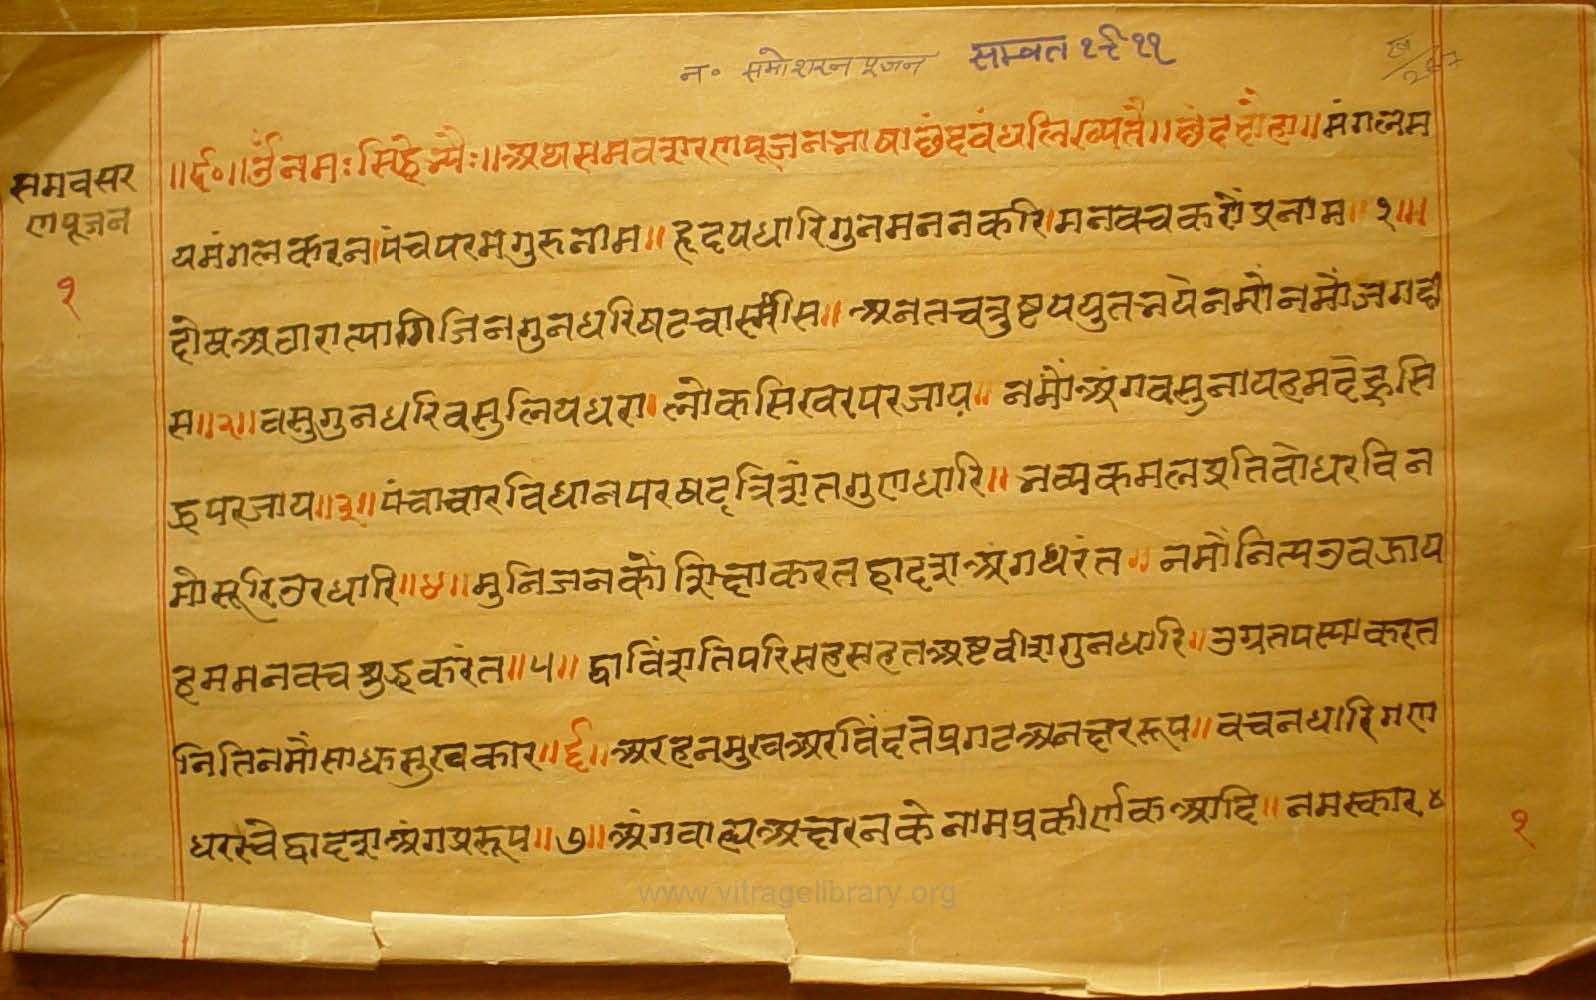 न॰ समोशरन पूजन सम्वत १९११
समवसर
णपूजन
१
॥ई॰॥ॐनमःसिद्धेभ्यैः॥अथसमवशरणपूजनभाषाछंदबंधलिख्यतै॥छंददोहा॥मंगलम
यमंगलकरन।पंचपरमगुरुनाम॥हृदयधारिगुनमननकरि।मनवचकरौंप्रनाम॥१॥
दोषअठारात्यागिजिनगुनधरिषटचालीस॥अनतचतुष्टययुतभयेनमौंनमौंजगदी
स॥२॥वसुगुनधरिवसुलियधरा।लोकसिखरपरजाय॥नमौंअंगवसुनायहमदेहुसि
द्धपरजाय॥३॥पंचाचारविधानपरषटत्रिंशतगुणधारि॥भव्यकमलप्रतिबोधरविन
मोसूरिउरधारि॥४॥मुनिजनकौंशिक्षाकरतद्वादशअंगधरंत॥नमौंनित्यउवझाय
हममनवचशुद्धकरंत॥५॥द्वाविंशतिपरिसहसहतअष्टवीशगुनधारि॥उग्रतपस्याकरत
नितिनमौसाधुसुखकार॥६॥अरहनमुखअरविंदतेप्रगटअनक्षररूप॥वचनधारिगण
धररचेद्वादशअंगप्ररूप॥७॥अंगबाह्यअक्षरनकेनामप्रकीर्णकआदि॥नमस्कार४
१
www.vitragelibrary.org